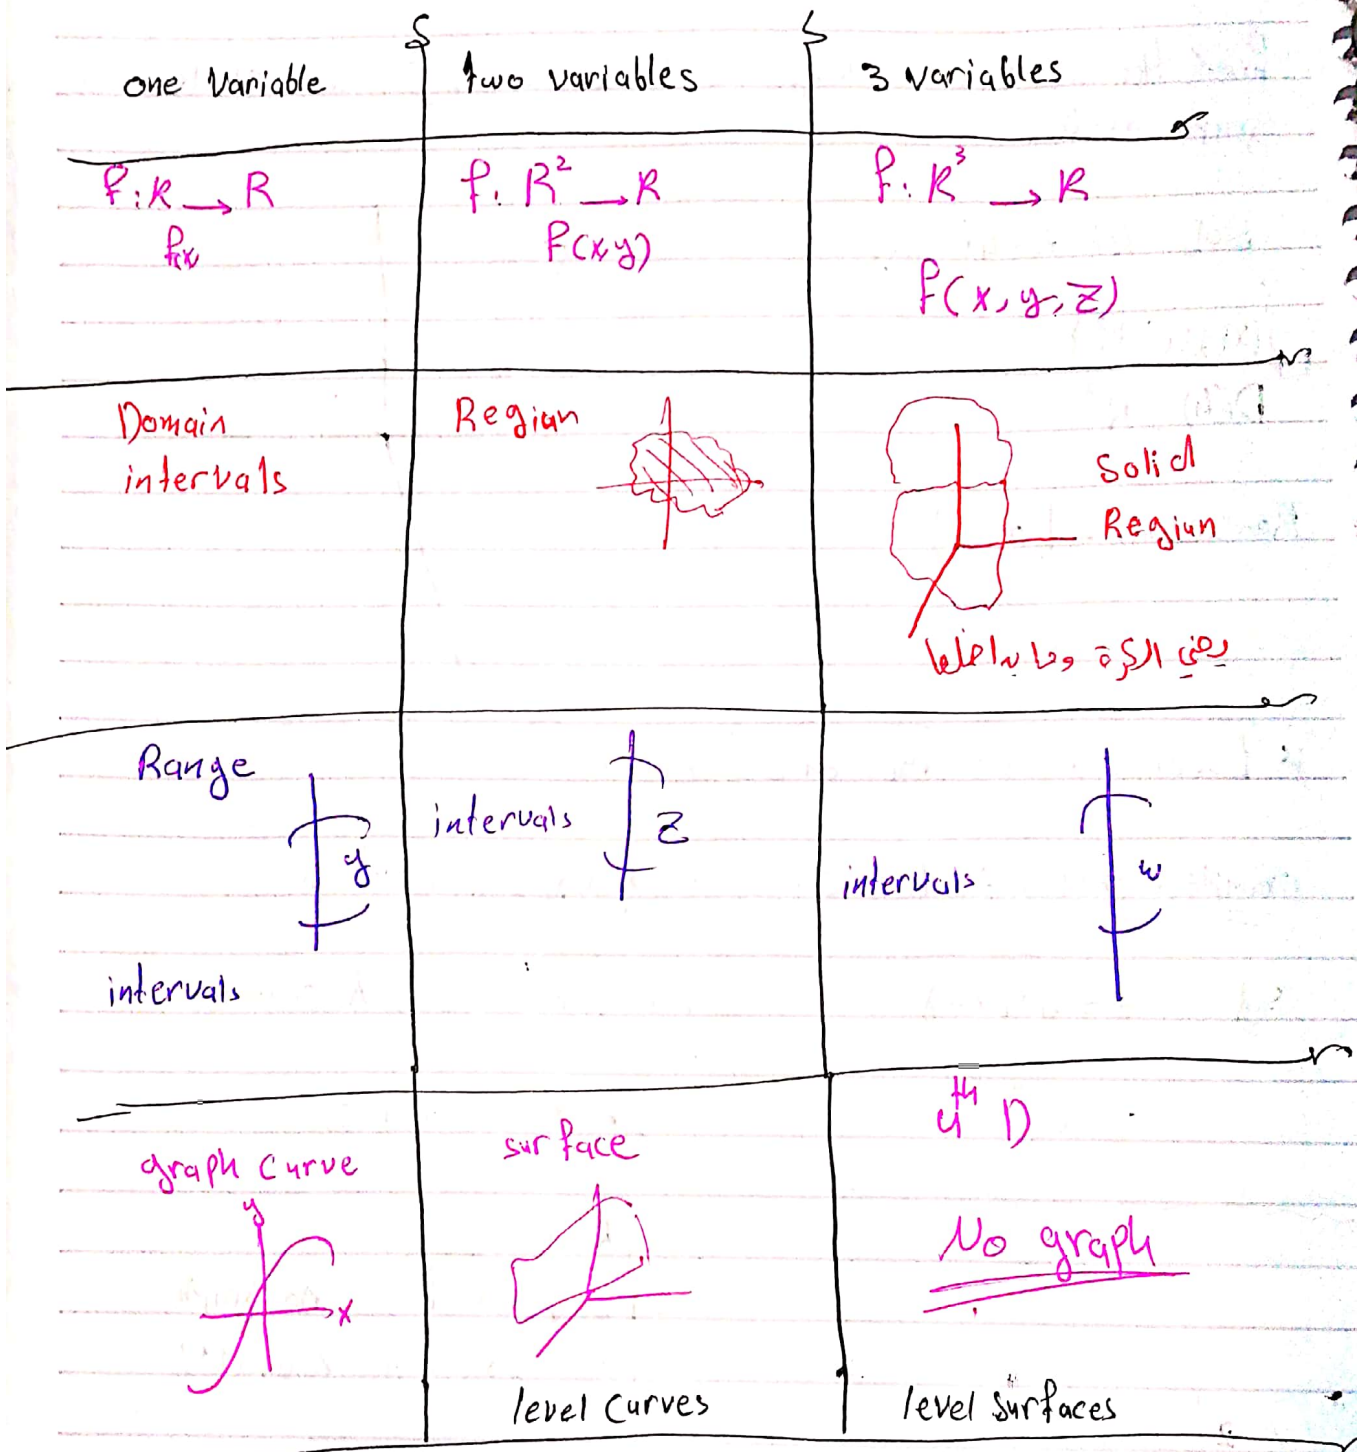 one Variable
two variables
3 variables
f: R → R
f(x)
f: R² → R
f(x,y)
f: R³ → R
f(x, y, z)
Domain
intervals
Region
Solid
Region
يعني الكرة وما بداخلها
Range
y
intervals
intervals
z
intervals
w
graph curve
y
x
surface
4th D
No graph
level curves
level surfaces